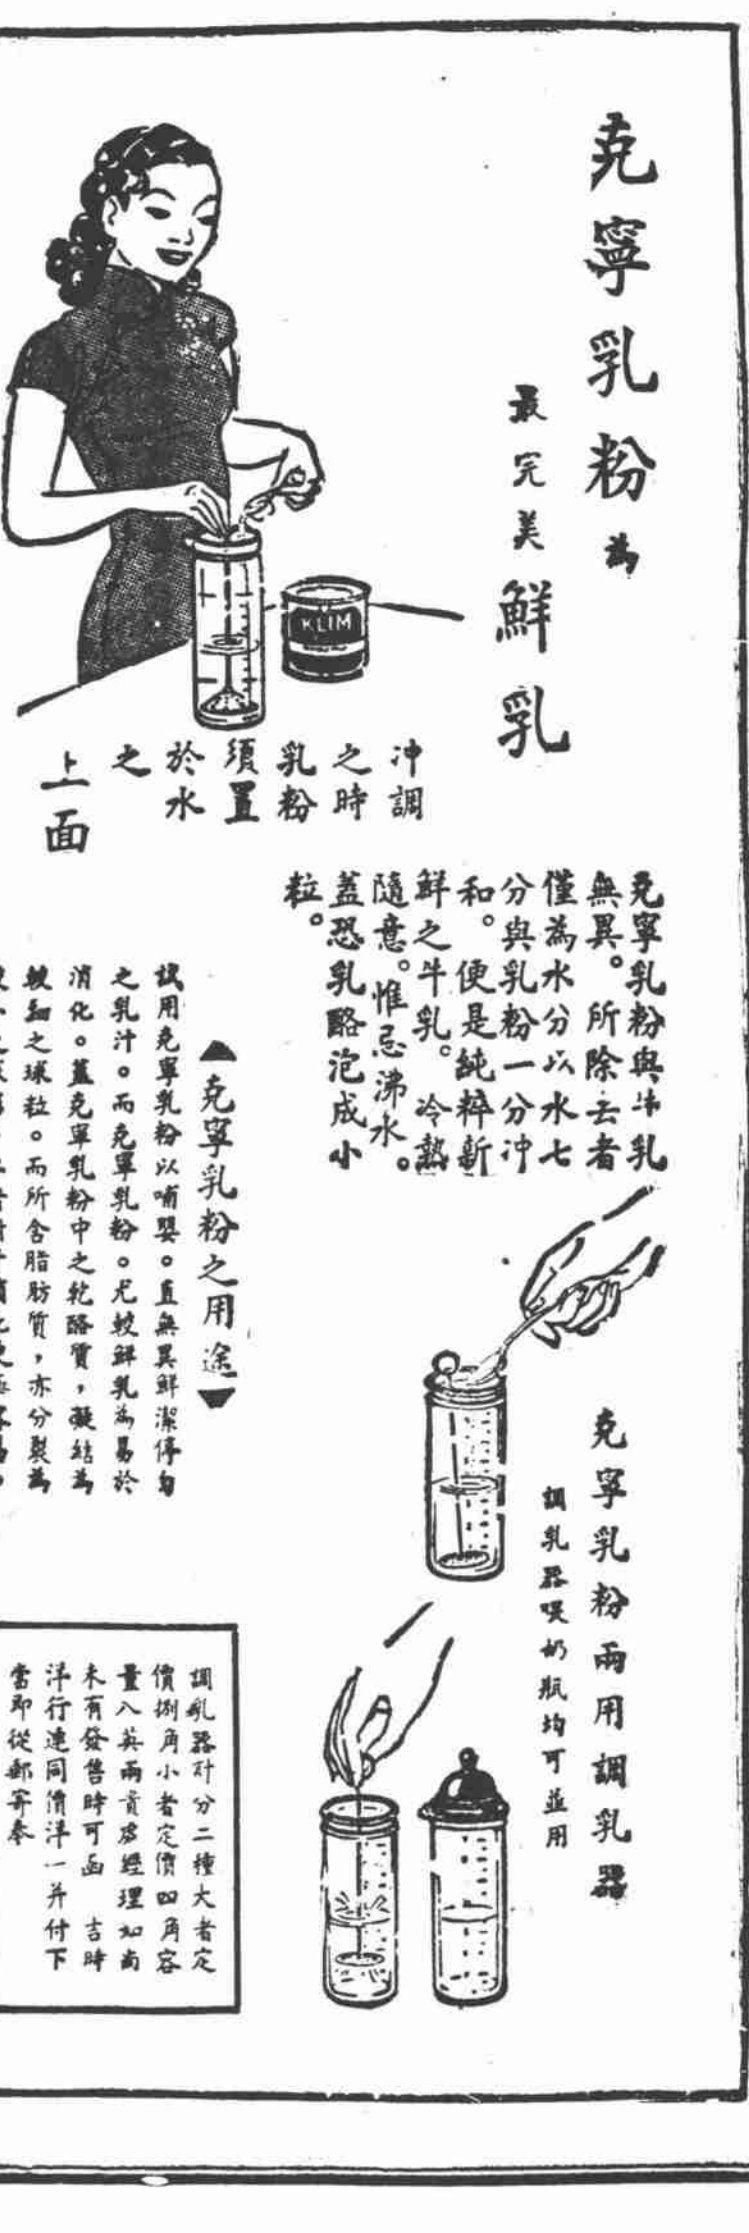 克寧乳粉為
最完美鮮乳
KLIM
冲調
之時
乳粉
須置
於水
之
上面
克寧乳粉與牛乳
無異。所除去者
僅為水分以水七
分與乳粉一分冲
和。便是純粹新
鮮之牛乳。冷熱
隨意。惟忌沸水。
蓋恐乳酪泡成小
粒。
▲克寧乳粉之用途▼
試用克寧乳粉以哺嬰。直無異鮮潔停勻
之乳汁。而克寧乳粉。尤較鮮乳為易於
消化。蓋克寧乳粉中之乾酪質，凝結為
較細之球粒。而所含脂肪質，亦分裂為
克寧乳粉兩用調乳器
調乳器喂奶瓶均可並用
調乳器計分二種大者定
價捌角小者定價四角容
量八英兩貴處經理如尚
未有發售時可函 吉時
洋行連同價洋一并付下
當即從郵寄奉